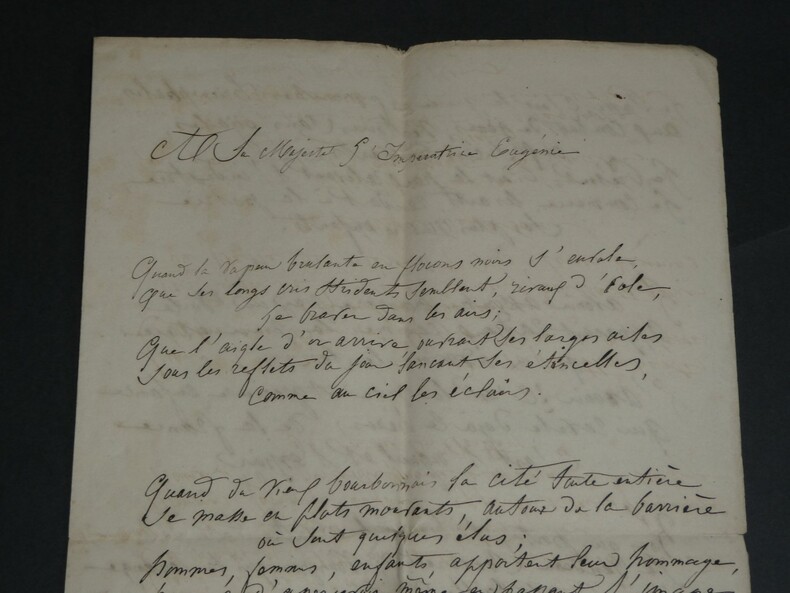 A Sa Majesté L'Impératrice Eugénie
Quand la vapeur brulante en flocons noirs s'envole,
Que ses longs cris stridents semblent, rivaux d'Éole,
Le braver dans les airs;
Que l'aigle d'or arrive ouvrant ses larges ailes
Sous les reflets du jour lancant ses étincelles,
Comme au ciel les éclairs.
Quand du vieux bourbonnais la cité toute entière
Se masse en flots mouvants, autour de la barrière
où sont quelques élus;
hommes, femmes, enfants apportent leur hommage,
d'apercevoir même en passant l'image